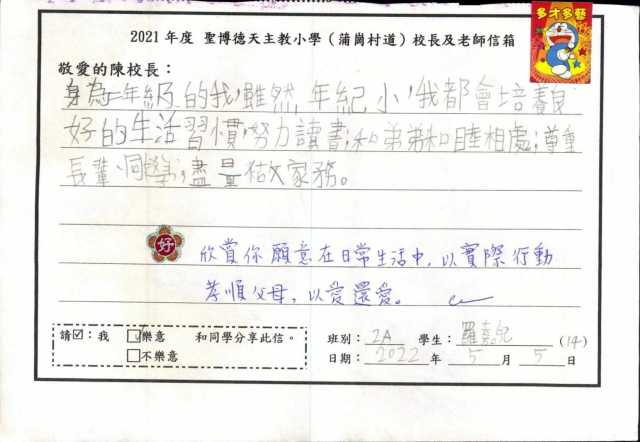 多才多藝
2021 年度 聖博德天主教小學（蒲崗村道）校長及老師信箱
敬愛的陳校長：
身為二年級的我，雖然年紀小，我都會培養良
好的生活習慣，努力讀書；和弟弟和睦相處；尊重
長輩、同學；盡量做家務。
好
欣賞你願意在日常生活中，以實際行動
孝順父母，以愛還愛。
請☑：我 ☑樂意 和同學分享此信。
□不樂意
班別：2A 學生：羅嘉兒 (14)
日期：2022 年 5 月 5 日